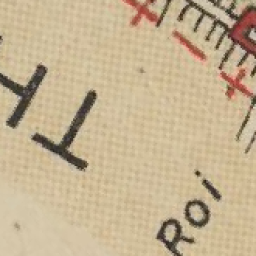 TH
Roi